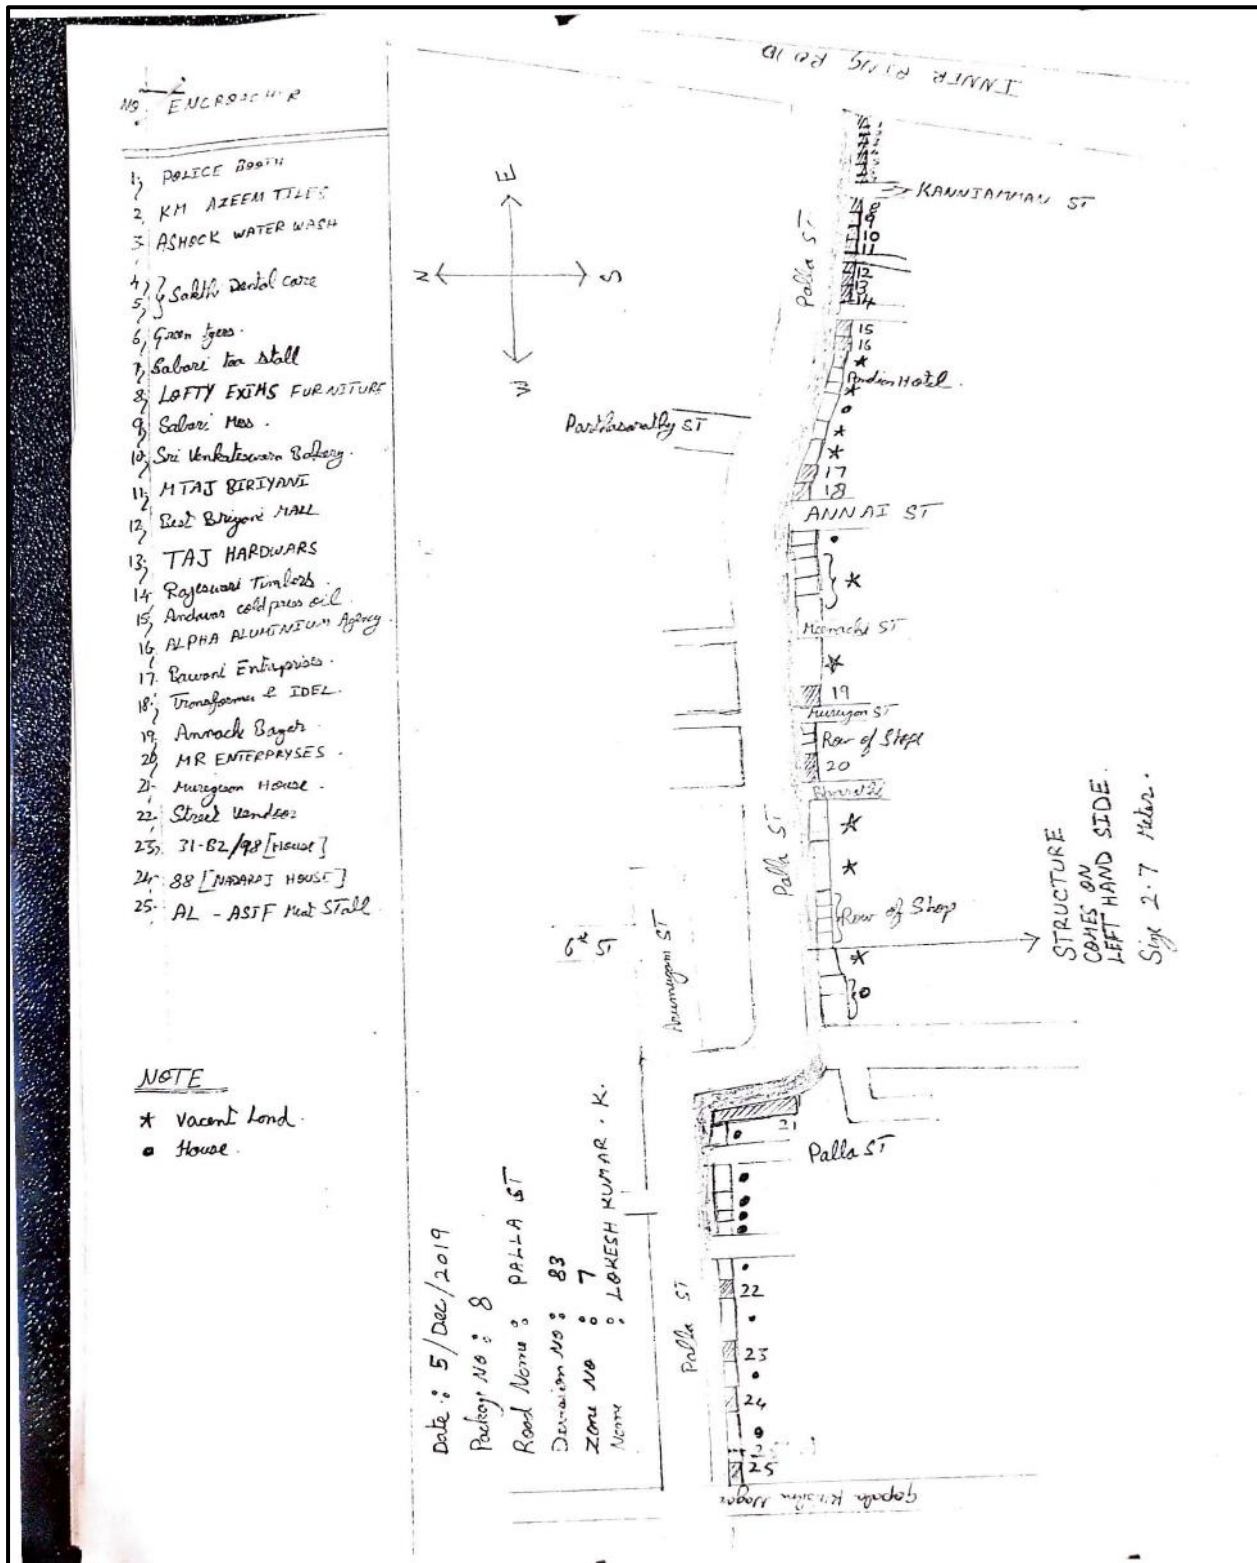 NO. ENCROACHER
1, POLICE BOOTH
2, KM AZEEM TILES
3, ASHOCK WATER WASH
4,
5, } Sakthi Dental care
6, Green tyers.
7, Sabari tea stall
8, LOFTY EXIMS FURNITURE
9, Sabari Mes.
10, Sri Venkateswara Bakery.
11, MTAJ BIRIYANI
12, Best Briyani MALL
13, TAJ HARDWARS
14, Rajeswari Timbers.
15, Andavar cold press oil.
16, ALPHA ALUMINIUM Agency.
17. Bawani Entreprises.
18, Transformer & IDEL.
19, Annachi
20, MR ENTERPRYSES.
21- Murugesan House.
22- Street Vendoor
23, 31-B2/98 [House]
24- 88 [NADARAJ HOUSE]
25- AL - ASIF Meat Stall
NOTE
* Vacent Land.
● House.
Date : 5/Dec/2019
Package NO : 8
Road Name : PALLA ST
Devision NO : 83
ZONE NO : 7
Name : LOKESH KUMAR . K.
E
N
S
W
INNER RING ROAD
KANNIAMMAN ST
Palla ST
8
9
10
11
12
13
14
15
16
*
Pandian Hotel.
*
●
*
*
17
18
Parthasarathy ST
ANNAI ST
●
*
Meenachi ST
*
19
Murugan ST
Row of Shops
20
Bharathi
*
Palla ST
*
Row of Shop
*
●
STRUCTURE
COMES ON
LEFT HAND SIDE.
Size 2.7 Meter.
6th ST
Arumugam ST
21
●
Palla ST
●
●
●
●
●
22
●
Palla ST
23
●
24
●
25
Gopala Krishna Nagar